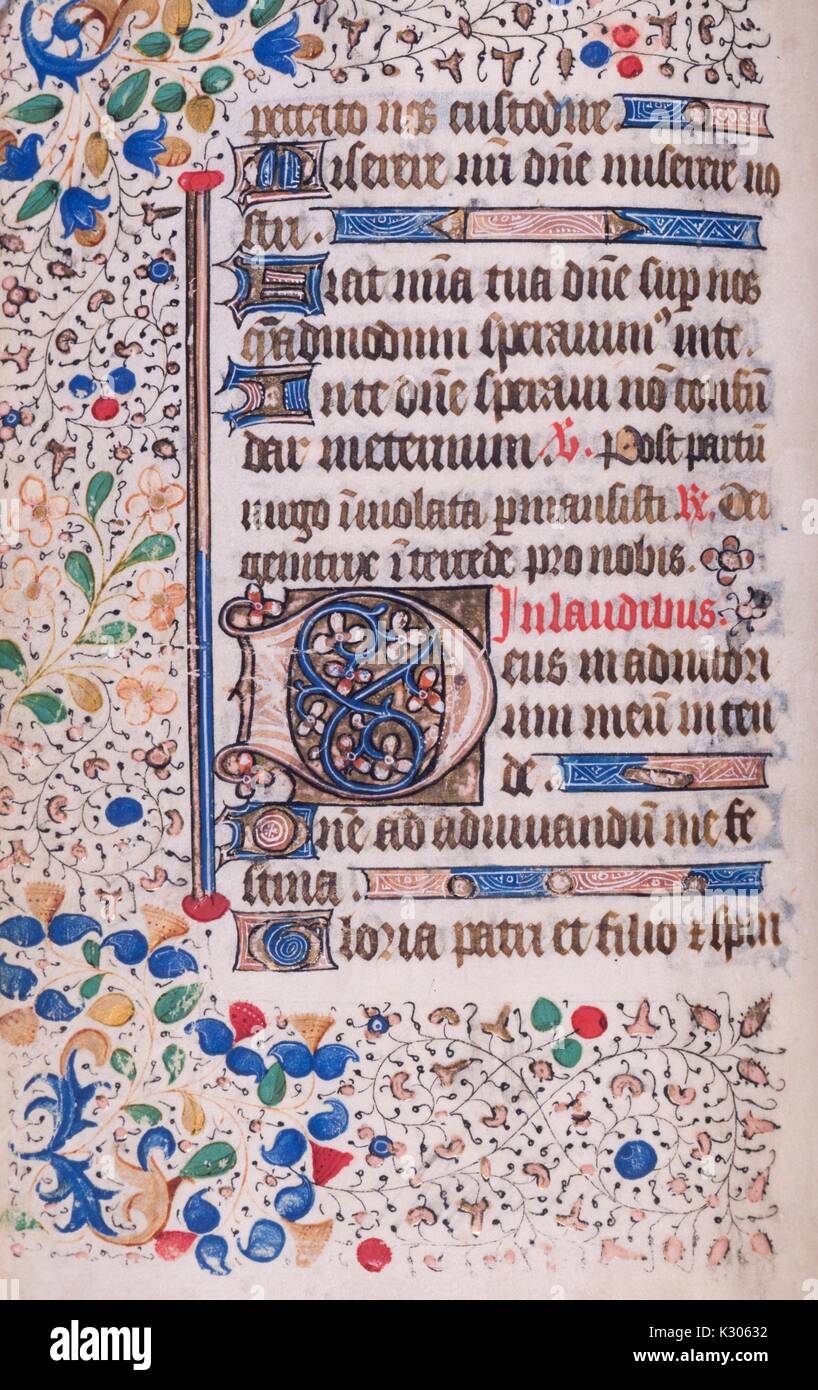 peccato nos custodire.
Miserere nr̄i dn̄e miserere no
stri.
Fiat mīa tua dn̄e sup̄ nos
q̄admodum sperauimꝰ inte.
Inte dn̄e speraui nō confun̄
dar ineternum. ℣. Post partū
uirgo īuiolata permansisti ℟. Dei
genitrix ītercede pro nobis.
In laudibus.
Deus in adiutori
um meū inten
de.
Dn̄e ad adiuuandū me fe
stina.
Gloria patri et filio ⁊ spiri
a
alamy
a
a
alamy
Image ID: K30632
www.alamy.com